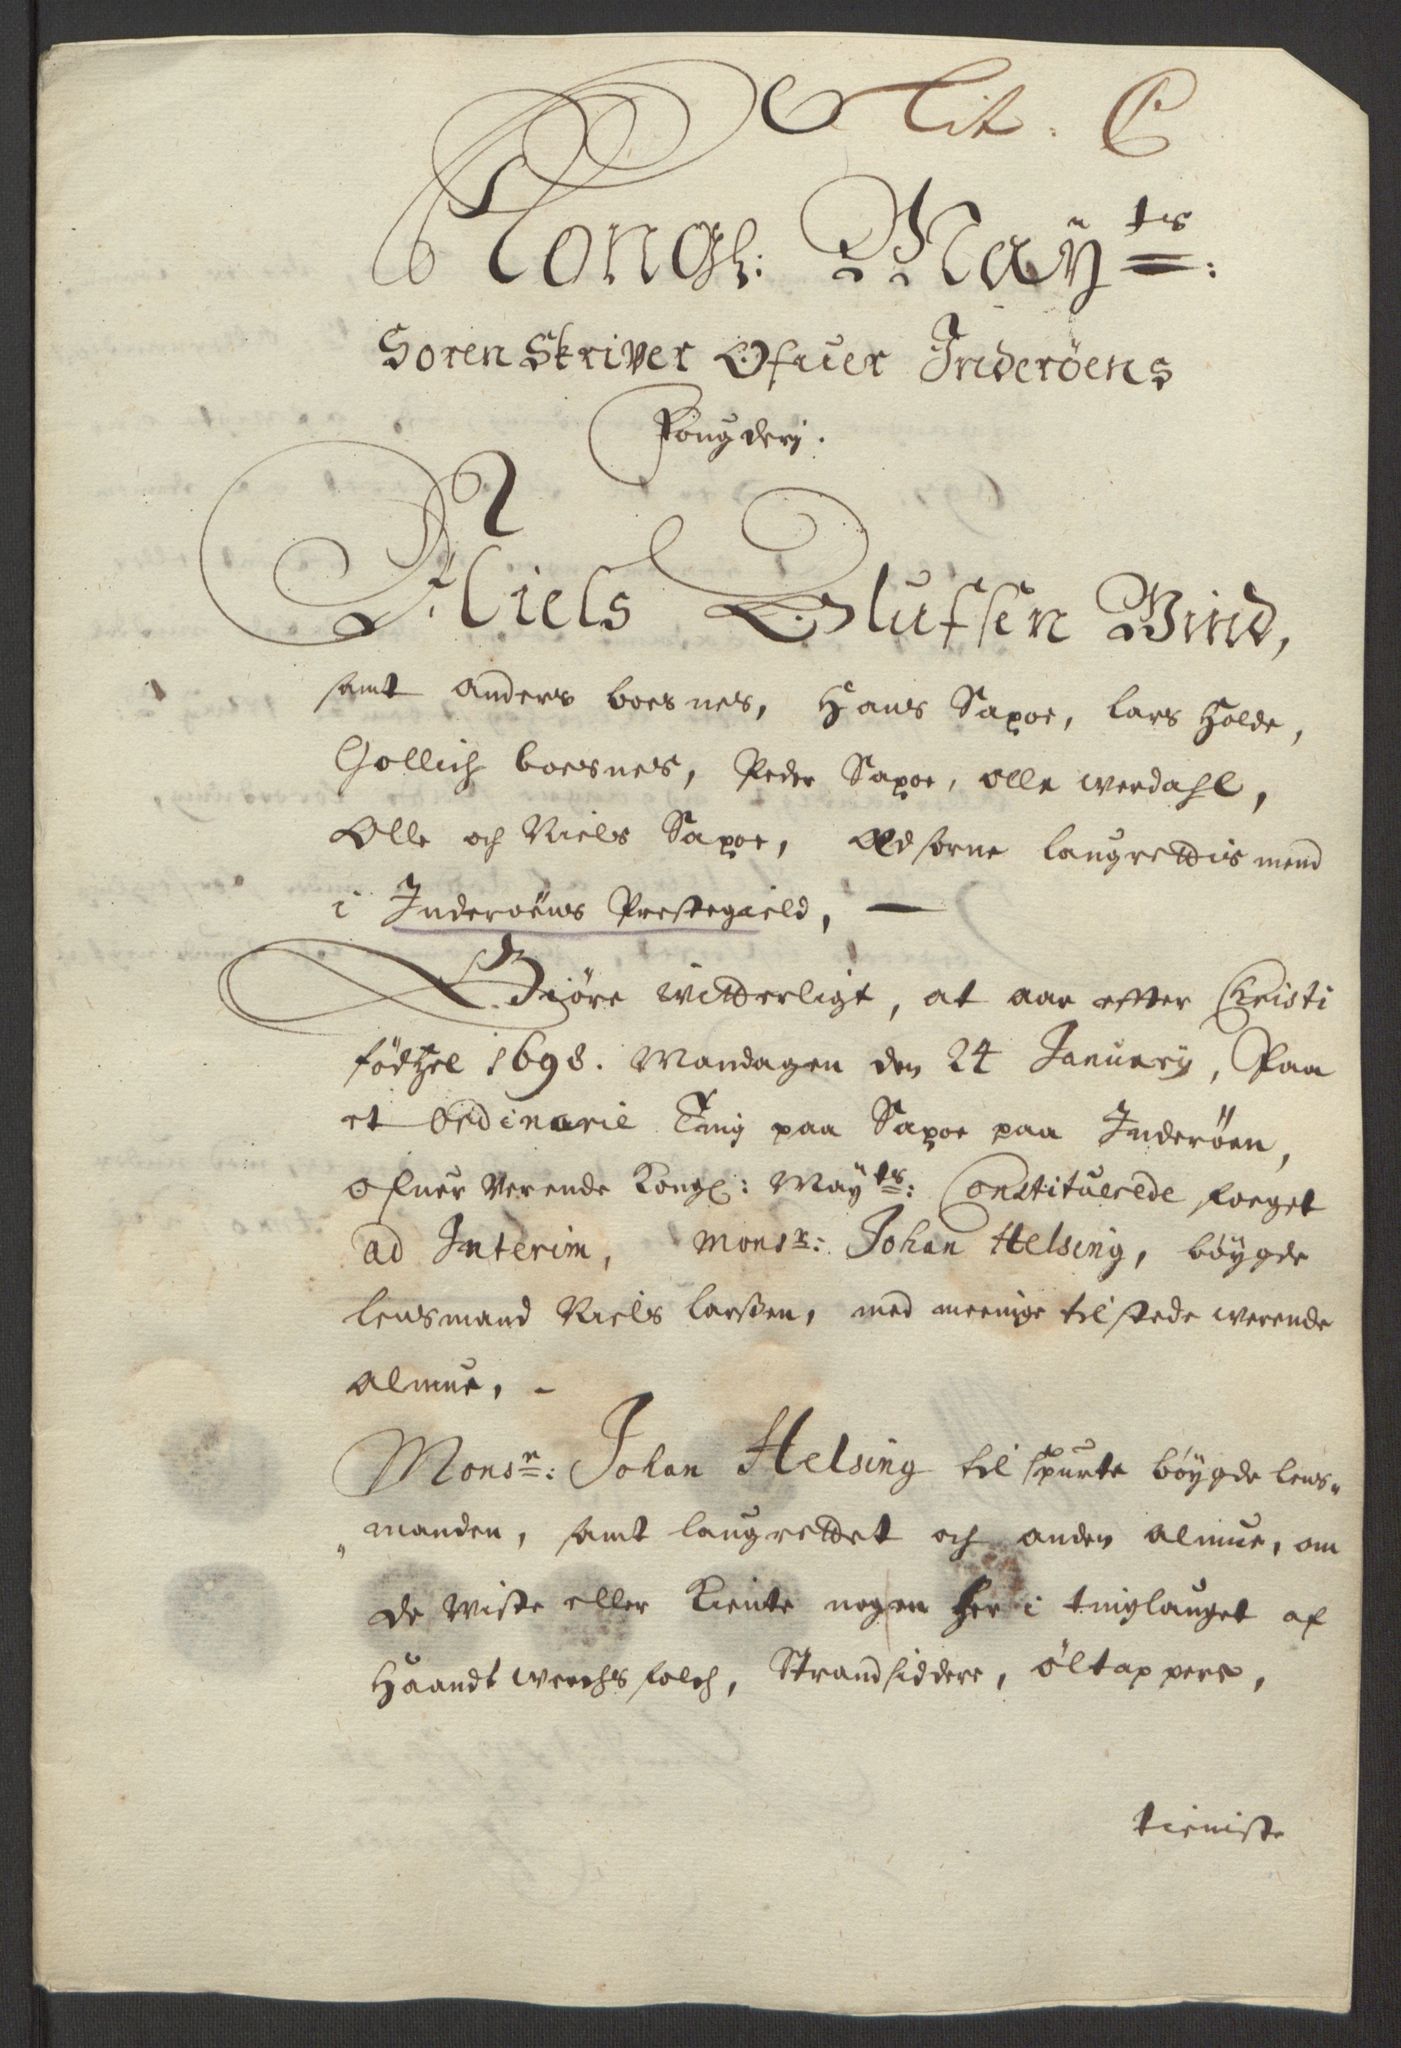 Lit. C
Kongl: Maÿ<sup>ts</sup>:
Soren Skriver Ofuer Inderöens
Fougderj.
Niels Olufsen Wind,
samt Anders boesnes, Hans Saxoe, Lars Holde,
Gollich boesnes, Peder Saxoe, olle werdahl,
Olle och Niels Saxoe, Edsorne laugrettis mend
i Inderoëns Prestegield,
Giöre witterligt, at aar efter Christi
födtzel 1698. Mandagen den 24 January, Paa
et Ordinarie Ting paa Saxoe paa Inderöen,
ofuer Verende Kongl: May<sup>ts</sup>: Constituerede foeget
ad Interim, Mons<sup>r</sup>: Johan Helsing, böygde
lensmand Niels larssen, med meenige tilstede werende
almue, -
Mons<sup>r</sup>: Johan Helsing tilspurte böygde lens-
manden, samt laugrettet och anden almue, om
de wiste eller kiente nogen her i tinglauget af
Haandtwerchs folch, Strandsiddere, öltappere,
tieniste